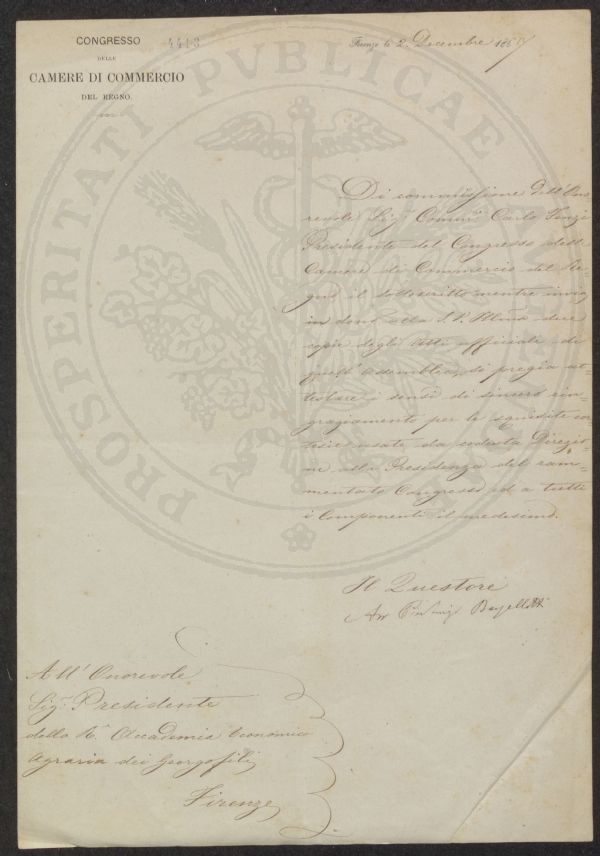 CONGRESSO
DELLE
CAMERE DI COMMERCIO
DEL REGNO.
4413
Firenze li 2 Decembre 1867
PROSPERITATI PVBLICAE AVGENDAE
Di commissione dell'Ono-
revole Sig.r Comm.e Carlo Fenzi
Presidente del Congresso delle
Camere di Commercio del Re-
gno il sottoscritto mentre invia
in dono alla S. V. Ill.ma due
copie degli Atti ufficiali di
quest'Assemblea, si pregia at-
testare i sensi di sincero rin-
graziamento per le squisite cor-
tesie usate da codesta Direzio-
ne alla Presidenza del ram-
mentato Congresso ed a tutti
i Componenti il medesimo.
Il Questore
All'Onorevole
Sig.r Presidente
della R. Accademia Economico
Agraria dei Georgofili
Firenze